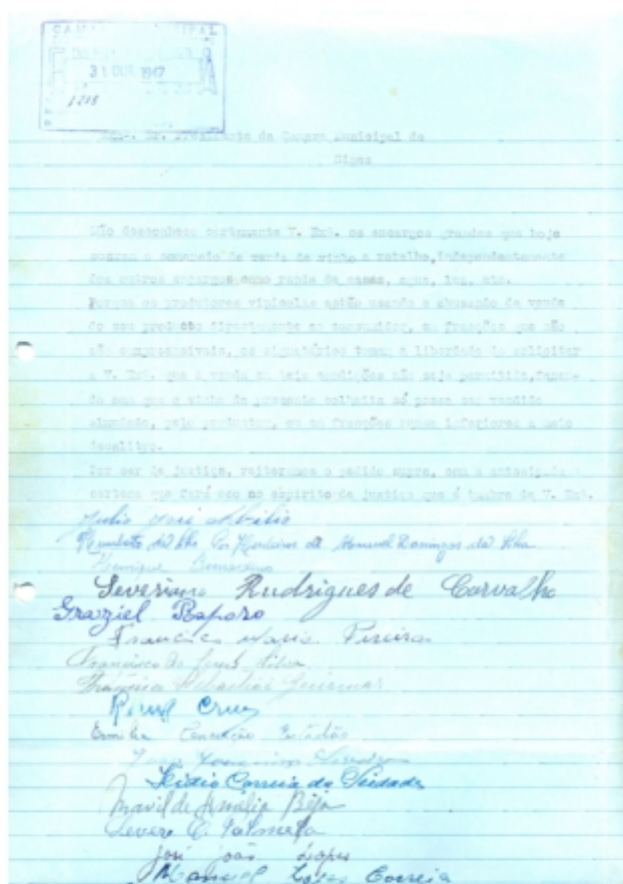 CAMARA MUNICIPAL
31 OUT 1947
1218
Exmo. Sr. Presidente da Camara Municipal de
Sines
Não desconhece certamente V. Exª. os encargos grandes que hoje
o comercio de venda de vinho a retalho, independentemente
dos outros encargos como renda de casas, agua, luz, etc.
Porque os produtores vinicolas estão usando e abusando da venda
do seu producto directamente ao consumidor, em fracções que não
são compreensivais, os signatários tomam a liberdade de solicitar
a V. Exª. que a venda em tais condições não seja permitida, fazen-
do com que o vinho da presente colheita só possa ser vendido
pelo productor, em fracções nunca inferiores a meio
decalitro.
Por ser de justiça, reiteramos o pedido supra, com a antecipada
certeza que fará eco no espirito de justiça que é timbre de V. Exª.
Julio José
Manuel Domingos da Silva
Henrique
Severiano Rudrigues de Carvalho
Graziel Raposo
Francisco Maria Pereira
Francisco de Silva
Sebastião
Raul Cruz
Ermilia Conceição
Joaquim
Lidio Correia da Piedade
Mavilde Amalia Béja
Severo C. Palmela
José João Lopes
Manuel Lopes Correia